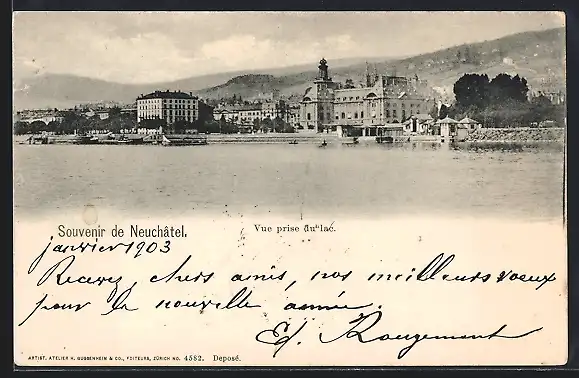 Souvenir de Neuchâtel. Vue prise du lac.
janvier 1903
Recevez, chers amis, nos meilleurs voeux
pour la nouvelle année.
Ed. Rougemont
ARTIST. ATELIER H. GUGGENHEIM & CO., EDITEURS, ZÜRICH NO. 4582. Deposé.